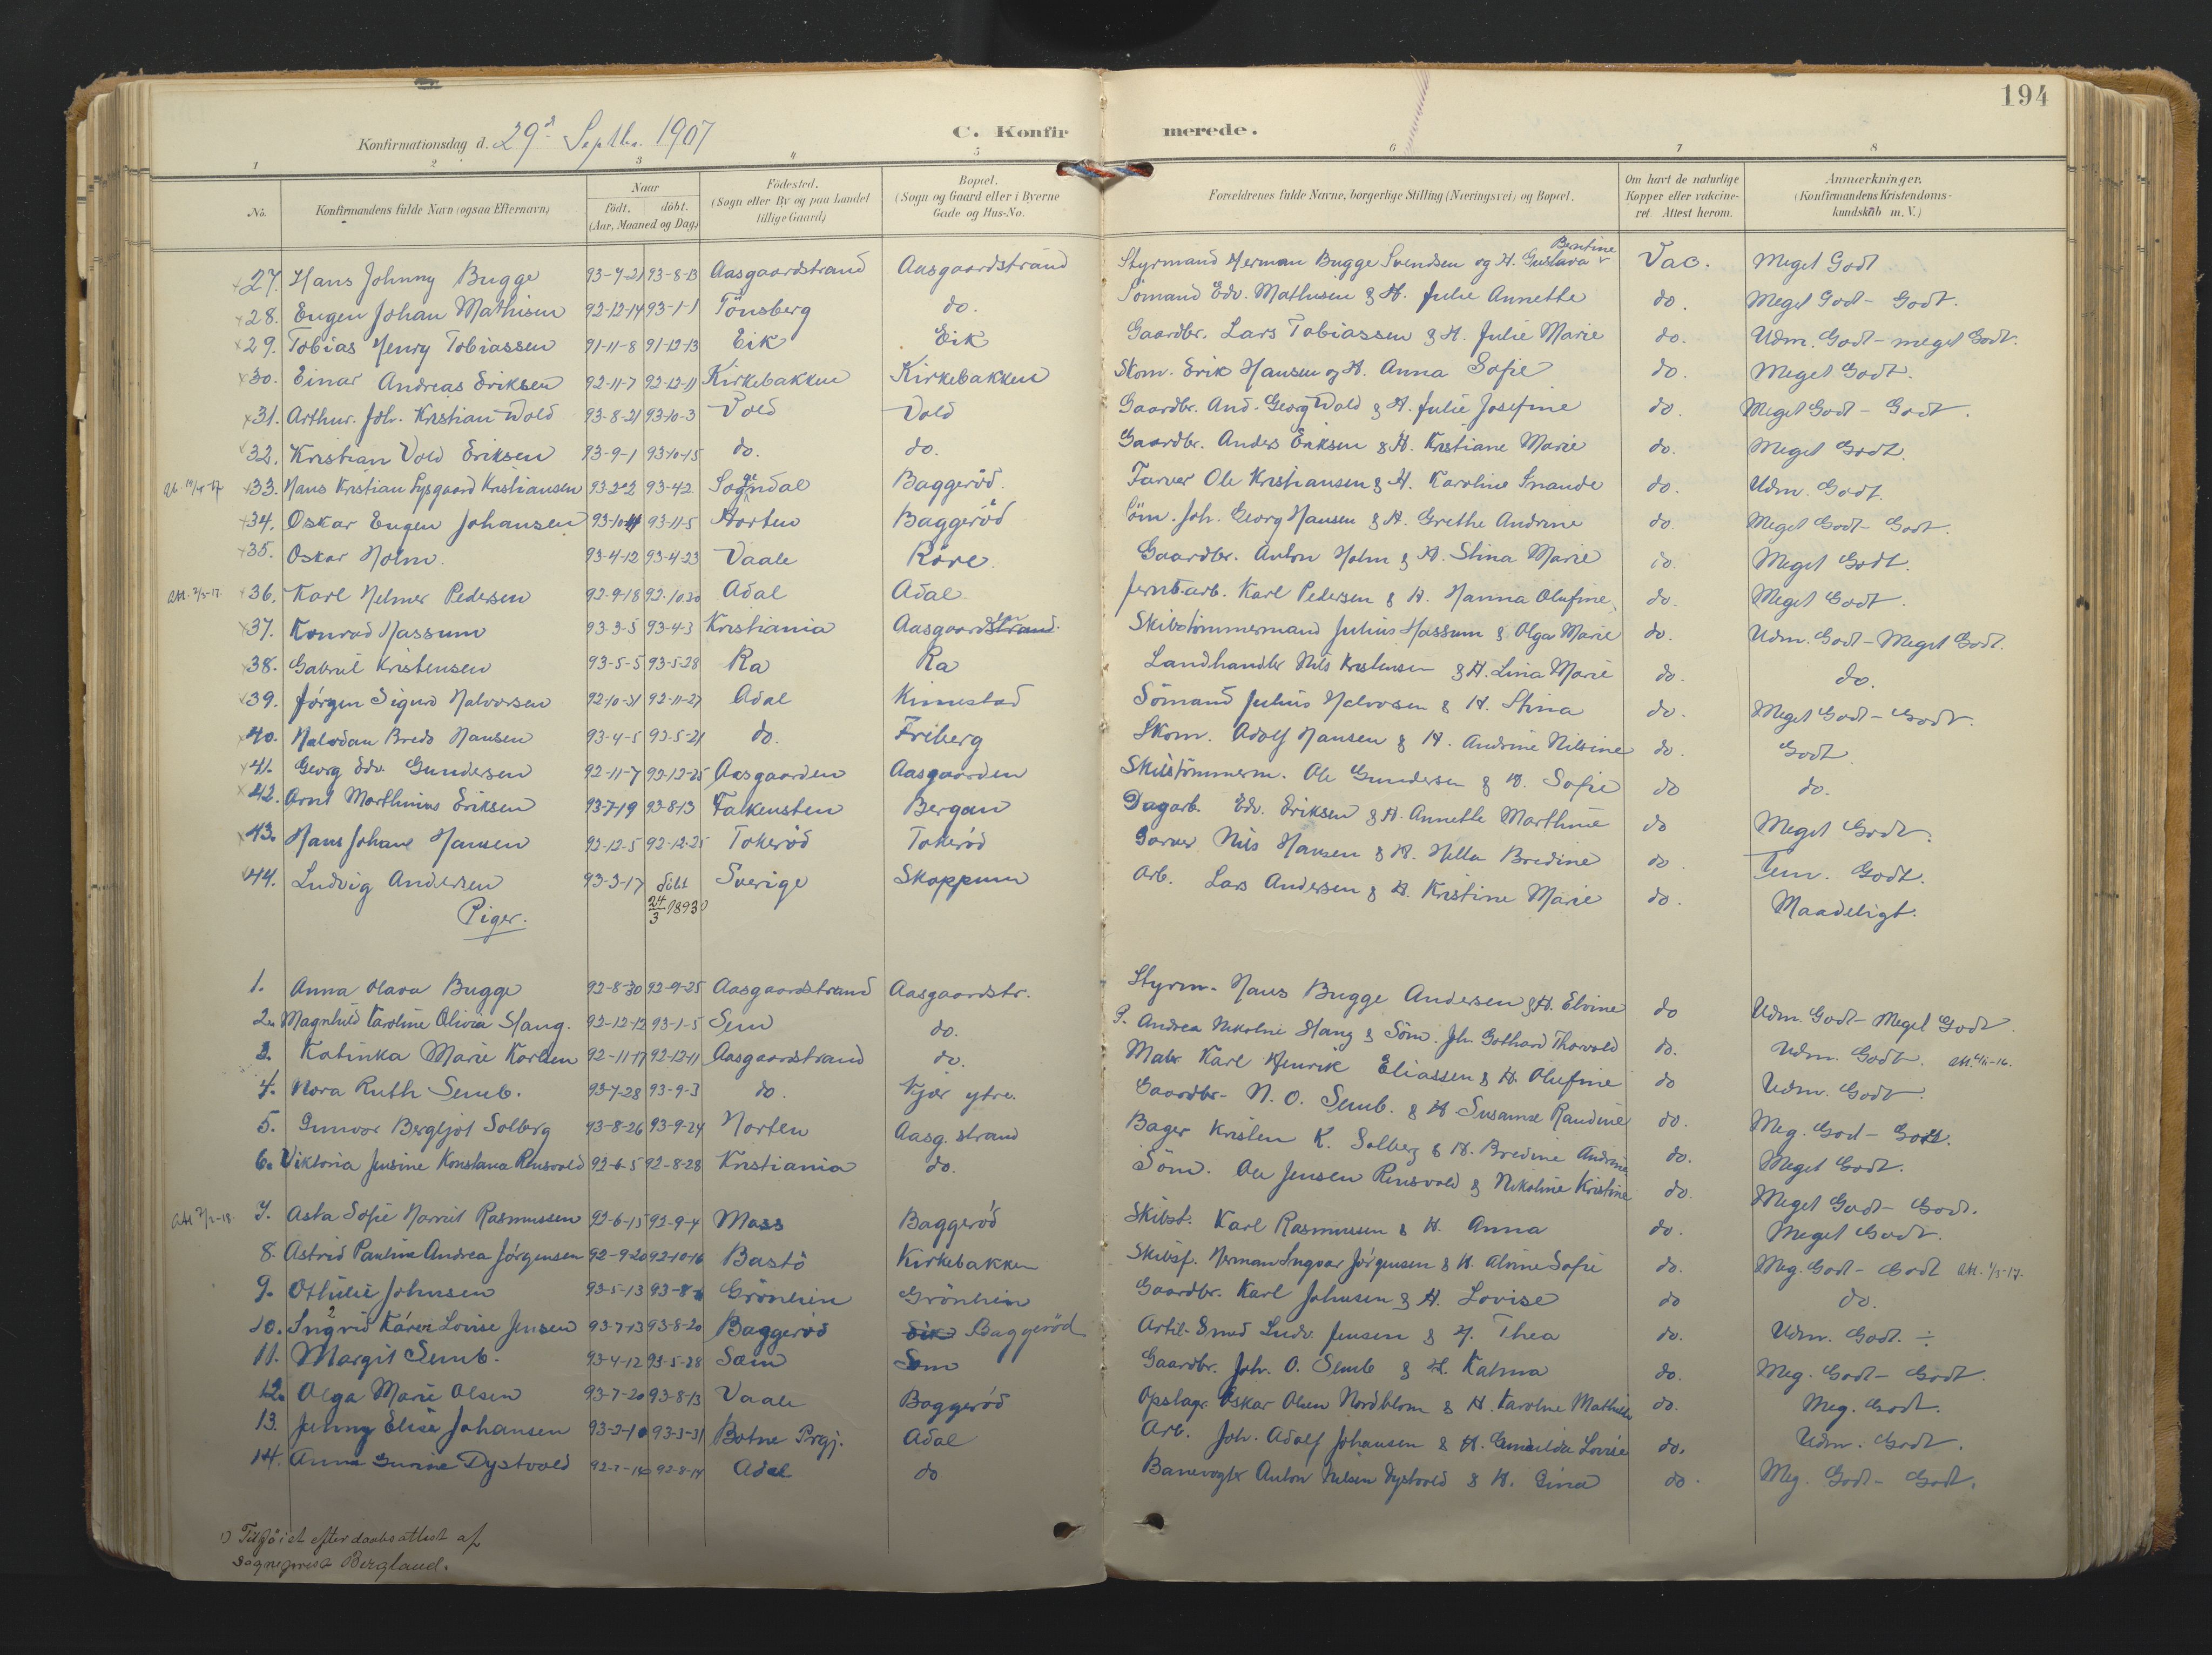 194
Konfirmationsdag d. 29de Septbr. 1907 C. Konfirmerede.
1 2 3 4 5 6 7 8
No. Konfirmandens fulde Navn (ogsaa Efternavn) Naar født. døbt. (Aar, Maaned og Dag) Fødested. (Sogn eller By og paa Landet tillige Gaard) Bopæl. (Sogn og Gaard eller i Byerne Gade og Hus-No. Forældrenes fulde Navne, borgerlige Stilling (Næringsvei) og Bopæl. Om havt de naturlige Kopper eller vaccineret. Attest herom. Anmærkninger. (Konfirmandens Kristendomskundskab m. V.)
27. Hans Johnny Bugge 93-7-21 93-8-13 Aasgaardstrand Aasgaardstrand Styrmand Herman Bugge Svendsen og H. Gustava Berntine Vac. Meget Godt
28. Eugen Johan Mathisen 92-12-14 93-1-1 Tönsberg do. Sömand Edv. Mathisen & H. Julie Annette do. Meget Godt - Godt.
29. Tobias Henry Tobiassen 91-11-8 91-12-13 Eik Eik Gaardbr. Lars Tobiassen & H. Julie Marie do. Udm. Godt - meget Godt.
30. Einar Andreas Eriksen 92-11-7 92-12-11 Kirkebakken Kirkebakken Skom. Erik Hansen og H. Anna Sofie do. Meget Godt.
31. Arthur Joh. Kristian Wold 93-8-21 93-10-3 Vold Vold Gaardbr. And. Georg Wold & H. Julie Josefine do. Meget Godt - Godt.
32. Kristian Vold Eriksen 93-9-1 93-10-15 do. do. Gaardbr. Anders Eriksen & H. Kristiane Marie do. Meget Godt.
33. Hans Kristian Lysgaard Kristiansen 93-2-2 93-4-2 Sogndal Baggeröd. Farver Ole Kristiansen & H. Karoline do. Udm. Godt.
34. Oskar Eugen Johansen 93-10-4 93-11-5 Horten Baggeröd Söm. Joh. Georg Hansen & H. Grethe Andrine do. Meget Godt - Godt.
35. Oskar Holm. 93-4-12 93-4-23 Vaale Röre. Gaardbr. Anton Holm & H. Stina Marie do. Meget Godt.
Att. 2/3-17. 36. Karl Helmer Pedersen 92-9-18 92-10-30 Adal Adal Jernb.arb. Karl Pedersen & H. Hanna Olufine do. Meget Godt.
37. Konrad Hassum 93-3-5 93-4-3 Kristiania Aasgaardstrand. Skibstömmermand Julius Hassum & Olga Marie do. Udm. Godt - Meget Godt.
38. Gabriel Kristensen 93-5-5 93-5-28 Ra Ra Landhandler Nils Kristensen & H. Lina Marie do. do.
39. Jörgen Sigurd Halvorsen 92-10-31 92-11-27 Adal Kinnestad Sömand Julius Halvorsen & H. Stina do. Meget Godt - Godt.
40. Halvdan Bredo Hansen 93-4-5 93-5-21 do. Friberg Skom. Adolf Hansen & H. Andrine Nilsine do. Godt.
41. Georg Edv. Gundersen 92-11-7 92-12-25 Aasgaarden Aasgaarden Skibstömmerm. Ole Gundersen & H. Sofie do do.
42. Arnt Marthinius Eriksen 93-7-19 93-8-13 Falkensten Bergan Dagarb. Edv. Eriksen & H. Annette Marthine do Meget Godt.
43. Hans Johan Hansen 92-12-5 92-12-25 Tokeröd Tokeröd Garver Nils Hansen & H. Hella Bredine do. Tem. Godt.
44. Ludvig Andersen 93-3-17 döbt 24/3 1893 Sverige Skoppum Arb. Lars Andersen & H. Kristine Marie do. Maadeligt.
Piger.
1. Anna Olava Bugge 92-8-30 92-9-25 Aasgaardstrand Aasgaardstr. Styrm. Hans Bugge Andersen & H. Elvine do Udm. Godt - Meget Godt.
2. Magnhild Karoline Olivia Stang. 92-12-12 93-1-5 Sem do. P. Andrea Nikoline Stang & Söm. Joh. Gothard Thorvald do. Udm. Godt.
3. Katinka Marie Karlsen 92-11-17 92-12-11 Aasgaardstrand do. Matr. Karl Henrik Eliassen & H. Olufine do Udm. Godt.
4. Nora Ruth Semb. 93-7-28 93-9-3 do. Kjær ytre. Gaardbr. N. O. Semb. & H. Susanne Randine do. Meg. Godt - Godt.
5. Gunvor Bergljot Solberg 93-8-26 93-9-24 Horten Aasg. strand Bager Kristen K. Solberg & H. Bredine Andrine do. Meget Godt.
6. Viktoria Jensine Konstanse Rensvold 92-6-5 92-8-28 Kristiania do. Söm. Ole Jensen Rensvold & Nikoline Kristine do. Meget Godt - Godt.
7. Asta Sofie Harriet Rasmussen 93-6-15 93-9-4 Moss Baggeröd Skibst. Karl Rasmussen & H. Anna do. Meget Godt.
8. Astrid Pauline Andrea Jörgensen 92-9-20 92-10-16 Bastö Kirkebakken Skibsf. Herman Ingvar Jörgensen & H. Alvine Sofie do. Meg. Godt - Godt Att. 1/3-17.
9. Othilie Johnsen 93-5-13 93-8-6 Grönlein Grönlein Gaardbr. Karl Johnsen & H. Lovise do do.
10. Ingrid Kåren Lovise Jensen 93-7-13 93-8-20 Baggeröd Eik Baggeröd Artil. Smed Ludv. Jensen & H. Thea do. Udm. Godt. ÷
11. Margit Semb. 93-4-12 93-5-28 Sem Sem Gaardbr. Joh. O. Semb & H. Kalma do. Meg. Godt - Godt.
12. Olga Marie Olsen 93-7-20 93-8-13 Vaale Baggeröd Opslagr. Oskar Olsen Nordblom & H. Karoline Mathilde do. Meg. Godt.
13. Jenny Elise Johansen 93-2-10 93-3-31 Botne Prgj. Adal Arb. Joh. Adolf Johansen & H. Lovise do. Udm. Godt.
14. Anna Gurine Dystvold 92-7-14 92-8-14 Adal do Banevogter Anton Nilsen Dystvold & H. Gina do. Meg. Godt - Godt.
1) Tilföiet efter daabsattest af
Sogneprest Bergland.